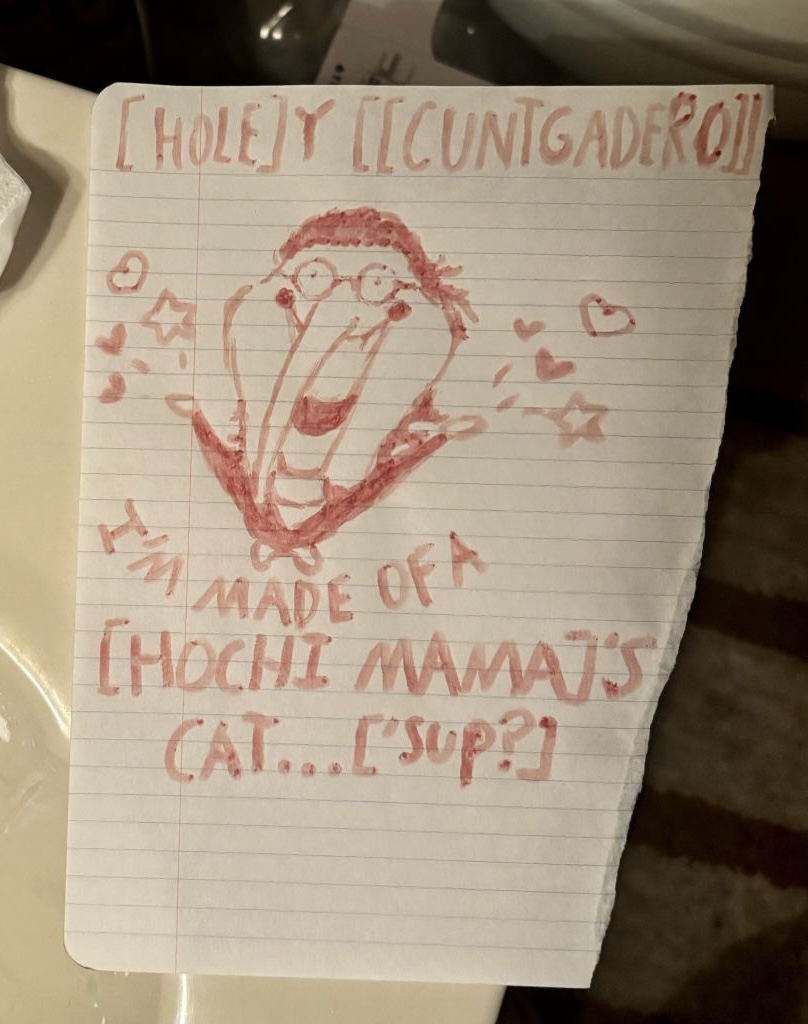 [HOLE]Y [[CUNTGADERO]]
I'M MADE OF A
[HOCHI MAMA]'S
CAT... ['SUP?]